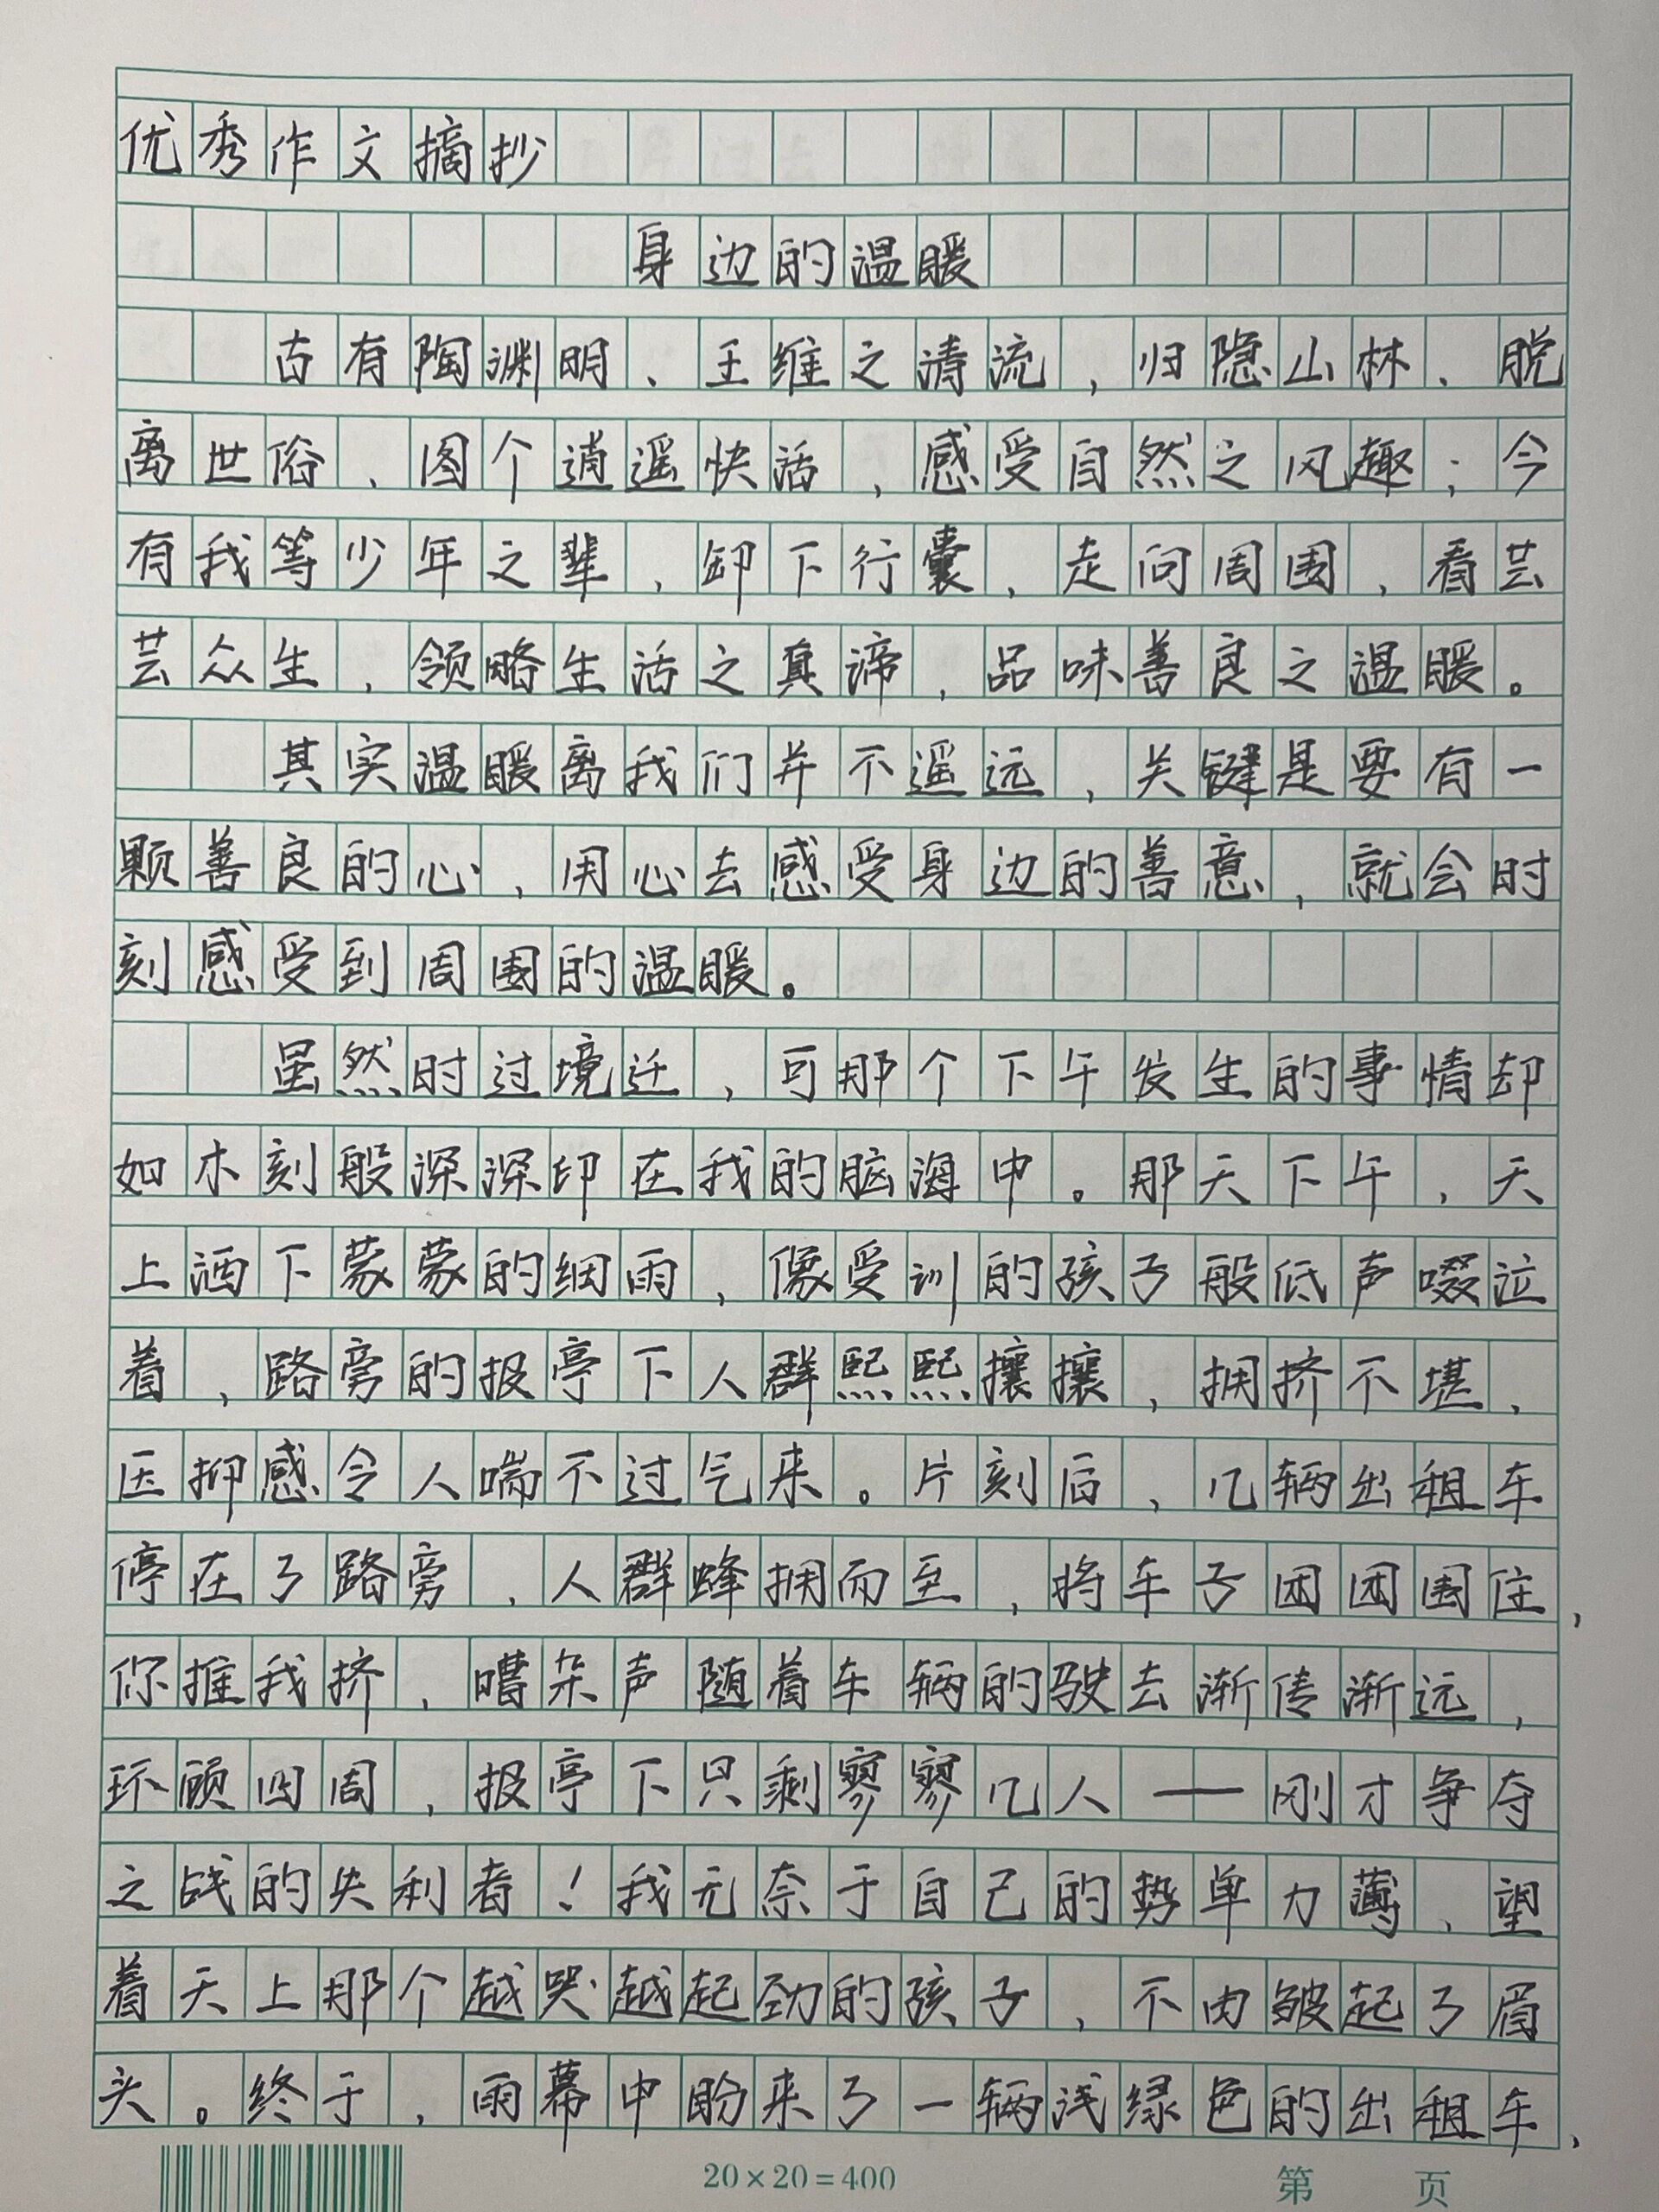 优秀作文摘抄
身边的温暖
古有陶渊明、王维之清流，归隐山林、脱
离世俗、图个逍遥快活，感受自然之风趣；今
有我等少年之辈，卸下行囊，走向周围，看芸
芸众生，领略生活之真谛，品味善良之温暖。
其实温暖离我们并不遥远，关键是要有一
颗善良的心，用心去感受身边的善意，就会时
刻感受到周围的温暖。
虽然时过境迁，可那个下午发生的事情却
如木刻般深深印在我的脑海中。那天下午，天
上洒下蒙蒙的细雨，像受训的孩子般低声啜泣
着，路旁的报亭下人群熙熙攘攘，拥挤不堪，
压抑感令人喘不过气来。片刻后，几辆出租车
停在了路旁，人群蜂拥而至，将车子团团围住，
你推我挤，嘈杂声随着车辆的驶去渐传渐远，
环顾四周，报亭下只剩寥寥几人——刚才争夺
之战的失利者！我无奈于自己的势单力薄，望
着天上那个越哭越起劲的孩子，不由皱起了眉
头。终于，雨幕中盼来了一辆浅绿色的出租车，
20×20=400
第 页